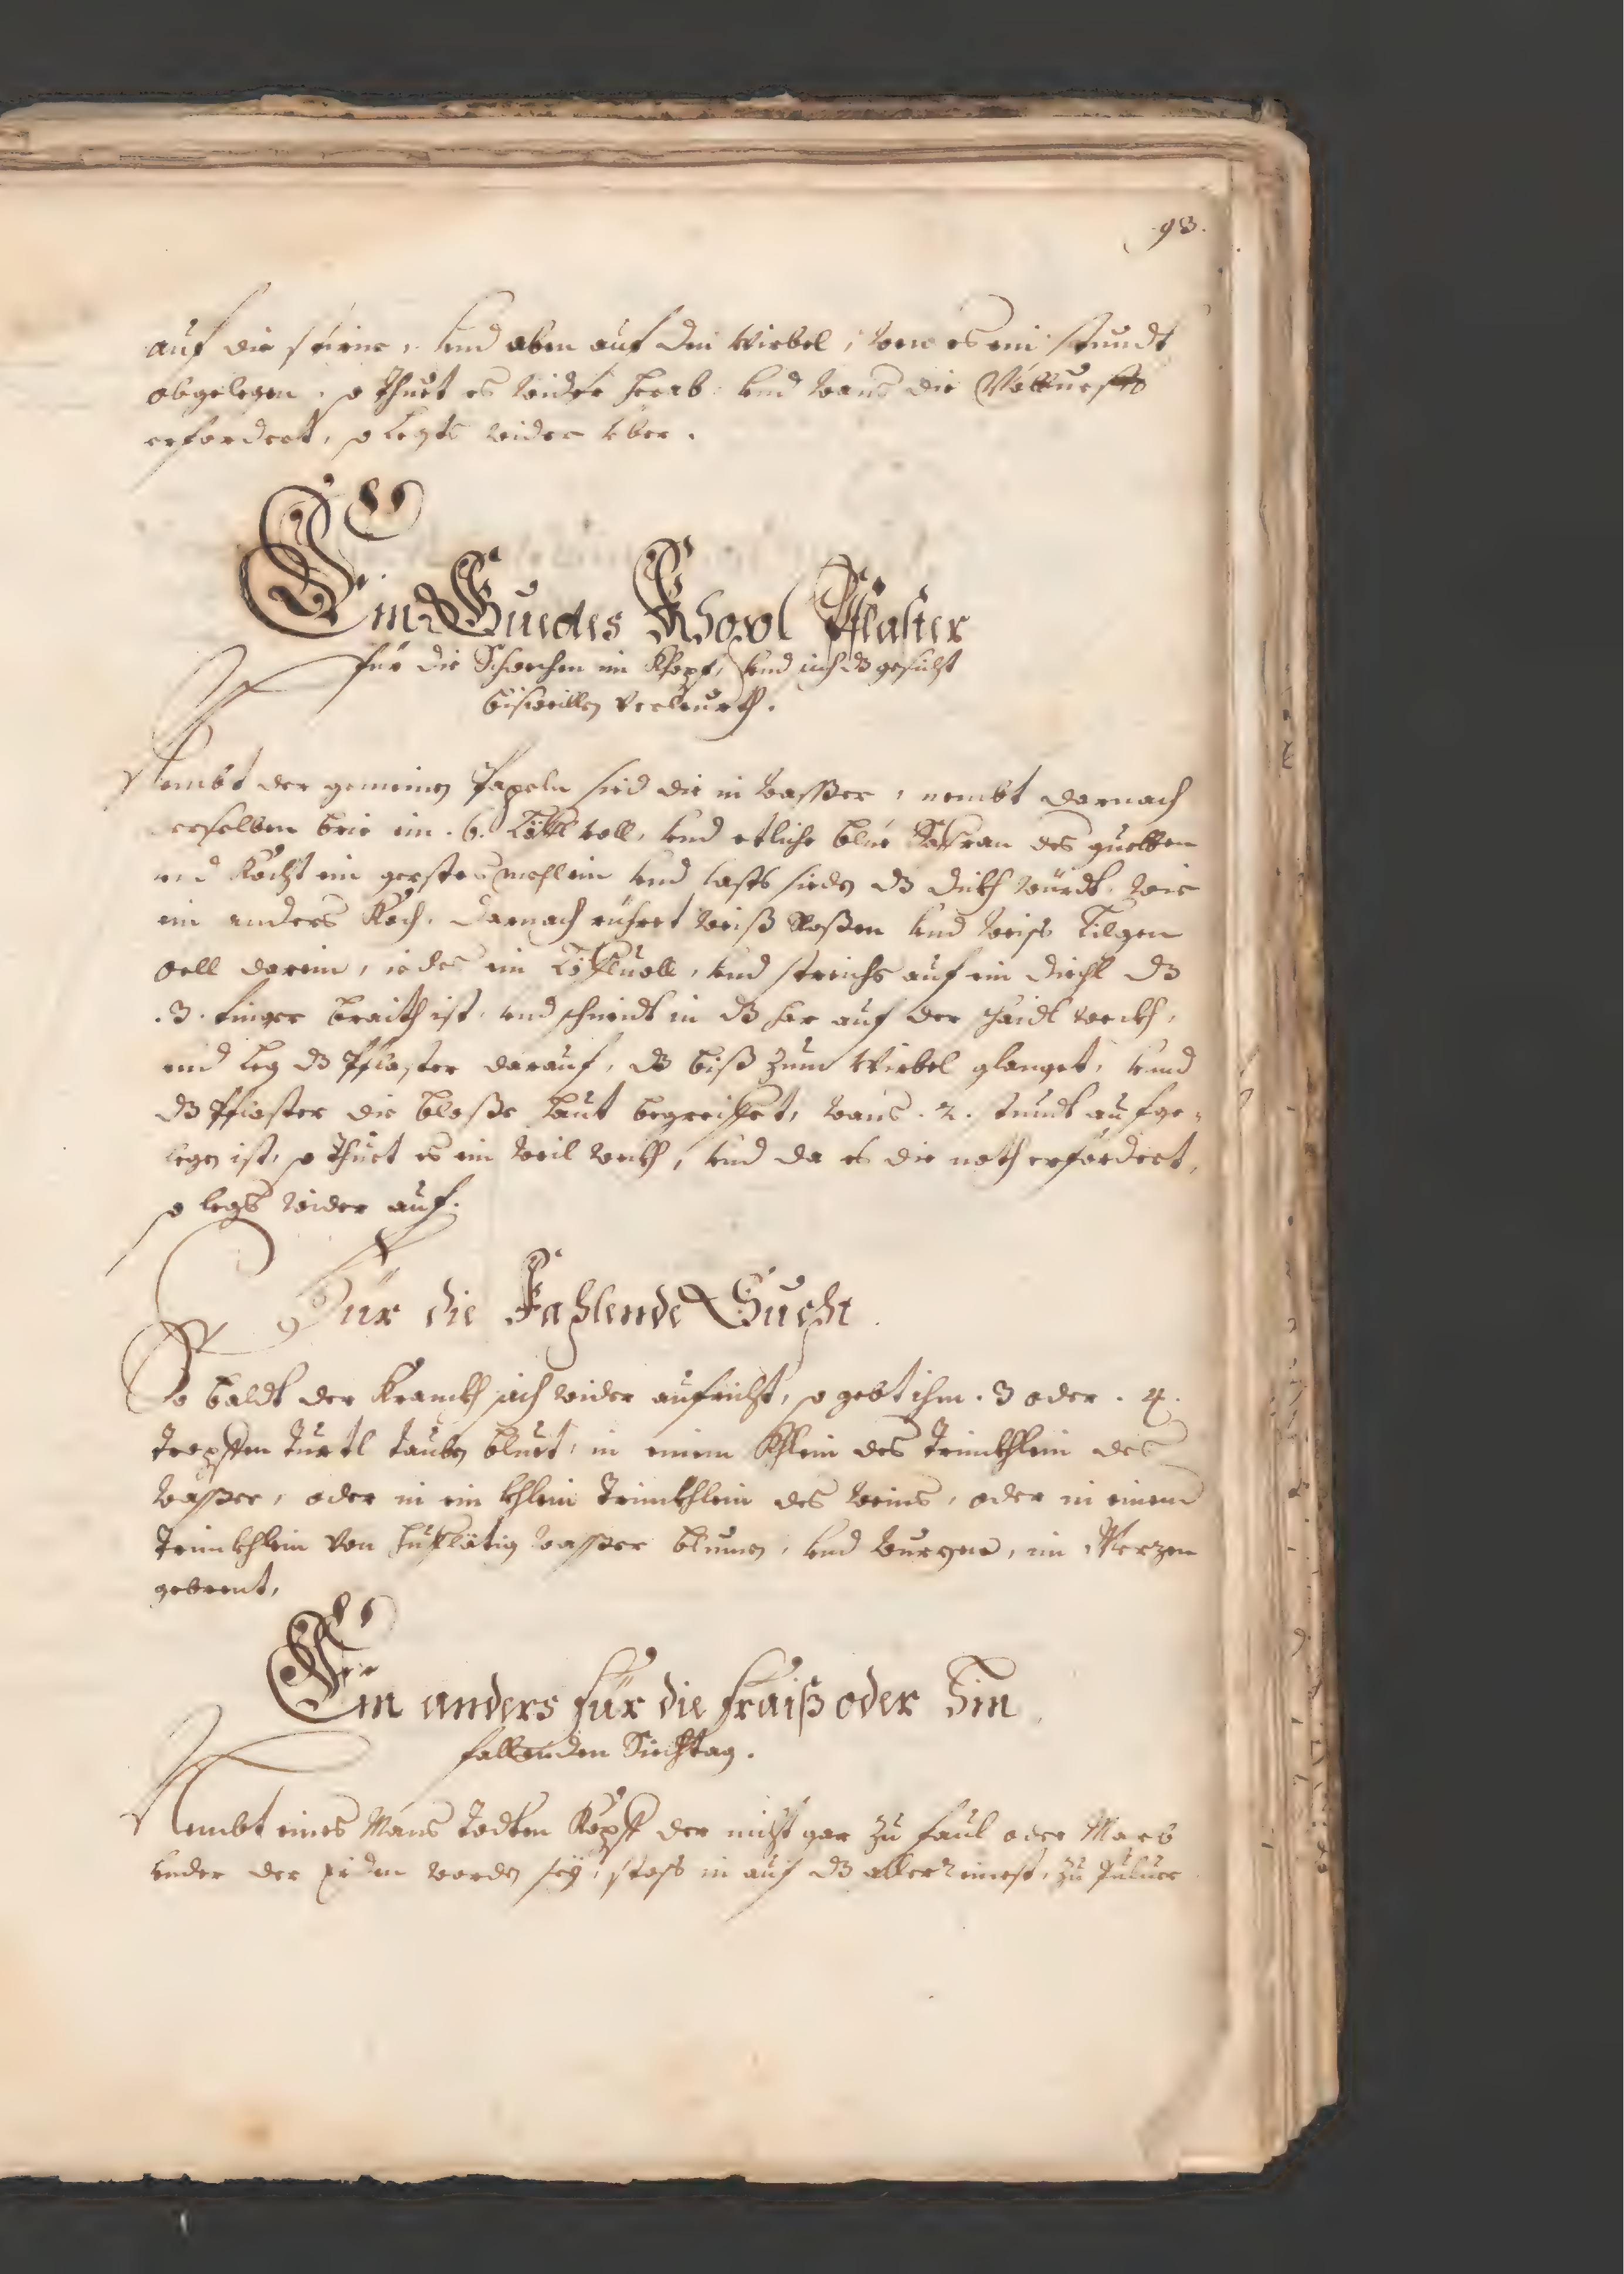 93.
auf die stirne, vnd oben auf den Wirbel, wen es ein stundt
obgelegen, so thuet es wider herab, vnd wans die
erfordert, so legts wider über.
Ein Guedes Pflaster
für die Schwechen im Khopf, vnd sich dz gesicht
bisweillen verleurth.
Nembt der gemeinen Papeln sied die in wasser, nembt darnach
derselben brie ein .6. Löffl voll, vnd etliche blüe Saffran des guetten
vnd Kocht ein gersten mehl ein vnd lasts sieden dz dickh würdt, wie
ein anders Koch. Darnach rühret weiß Roßen vnd weiss Lilgen
oell darein, iedes ein Löffl uoll, vnd streichs auf ein diechl dz
.3. finger braith ist, vnd schneidt in dz har auf der schaidl weckh,
vnd leg dz Pflaster darauf, dz biß zum Wirbel glanget, vnnd
dz Pflaster die bloße haut begreiffet, wans .2. stundt aufge-
legen ist, so thuet es ein weil weckh, vnd da es die noth erfordert,
so legs wider auf.
Für die Fahlende Sucht.
So baldt der Kranckh sich wider aufricht, so gebt ihm .3 oder .4.
tropffen turtl tauben bluet, in einem Khlein des trinckhlein des
wasser, oder in ein khlein trinckhlein des weins, oder in einem
trinckhlein von huflätig wasser blumen, vnd wurzen, im Merzen
gebrent,
Ein anders für die fraiß oder hin
fallenden Siechtag.
Nembt eines Mans todten Kopff der nicht gar zu faul oder Marb
vnder der erden worden sey, stoss in auf dz aller reinest, zu Puluer